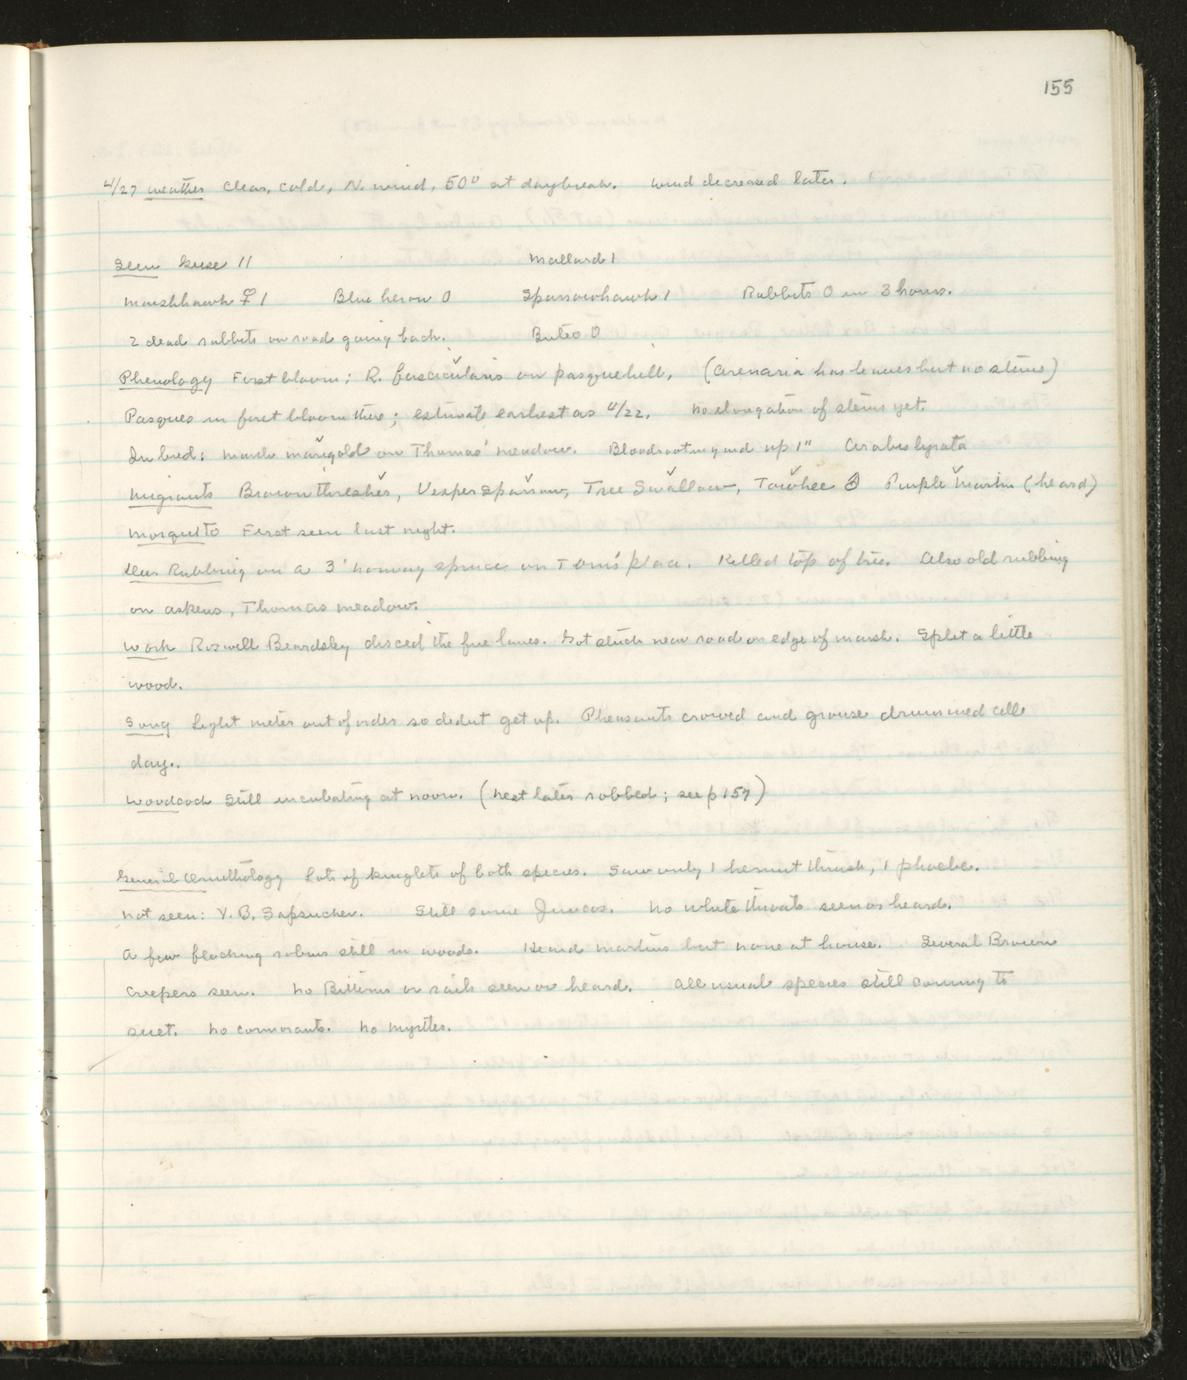 155
4/27 weather Clear, cold, N. wind, 50° at daybreak. Wind decreased later.
Seen Geese 11 Mallard 1
Marshhawk ♀ 1 Blue heron 0 Sparrowhawk 1 Rabbits 0 in 3 hours.
2 dead rabbits on road going back. Buteo 0
Phenology First bloom; R. fascicularis on pasquehill, (Arenaria has leaves but no stems)
Pasques in first bloom there; estimate earliest as 4/22. No elongation of stems yet.
In bud: Marsh marigold on Thomas' meadow. Bloodroot in yard up 1" Arabis lyrata
Migrants Brown thrasher, Vesper Sparrow, Tree Swallow, Towhee 3 Purple Martin (heard)
Mosquito First seen last night.
Deer Rubbing on a 3' norway spruce on Tom's place. Killed top of tree. Also old rubbing
on aspens, Thomas meadow.
Work Roswell Beardsley disced the fire lanes. Got stuck near road on edge of marsh. Split a little
wood.
Song Light meter out of order so didnt get up. Pheasants crowed and grouse drummed all
day.
Woodcock Still incubating at noon. (Nest later robbed; see p 157)
General Ornithology Lots of kinglets of both species. Saw only 1 hermit thrush, 1 phoebe.
Not seen: Y. B. Sapsucker. Still some Juncos. No whitethroats seen or heard.
A few flocking robins still in woods. Heard martins but none at house. Several Brown
Creepers seen. No Bitterns or rails seen or heard. All usual species still coming to
suet. No cormorants. No myrtles.